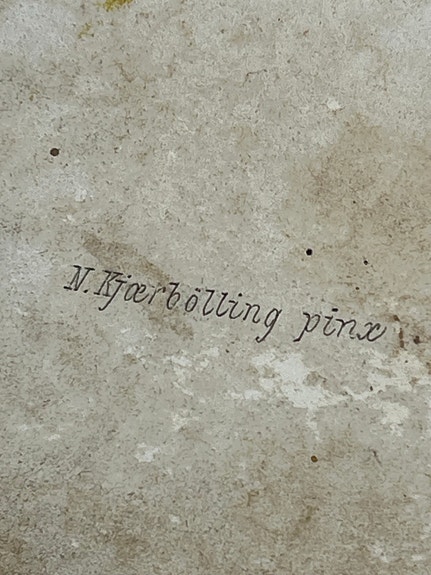 N. Kjærbölling pinx